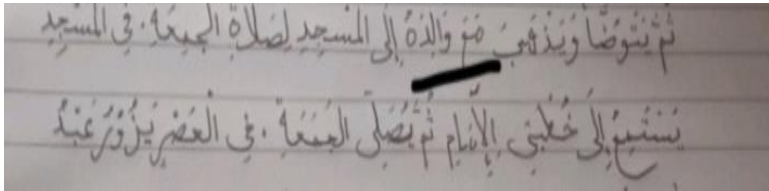 ثُمَّ يَتَوَضَّأُ وَيَذْهَبَ مَعَ وَالِدَهُ إِلَى الْمَسْجِدِ لِصَلَاةِ الْجُمِعَةِ. فِي الْمَسْجِدِ
يَسْتَمِعُ إِلَى خُطْبَتِي الْإِمَامِ ثُمَّ يُصَلِّي الْجُمَعَةَ. فِي الْعَصْرِ يَزُورُ عَبْدُ